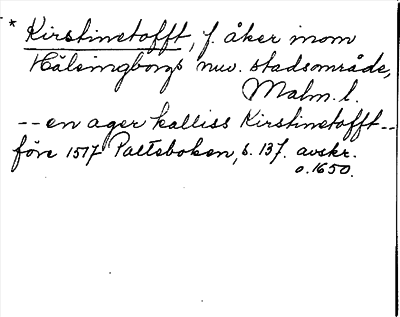 * Kirstinetofft, f. åker inom
Hälsingborgs nuv. stadsområde,
Malm. l.
-- en ager kalliss Kirstinetofft --
före 1517 Palteboken, s. 137. avskr.
o. 1650.